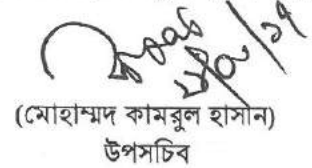 (মোহাম্মদ কামরুল হাসান)
উপসচিব